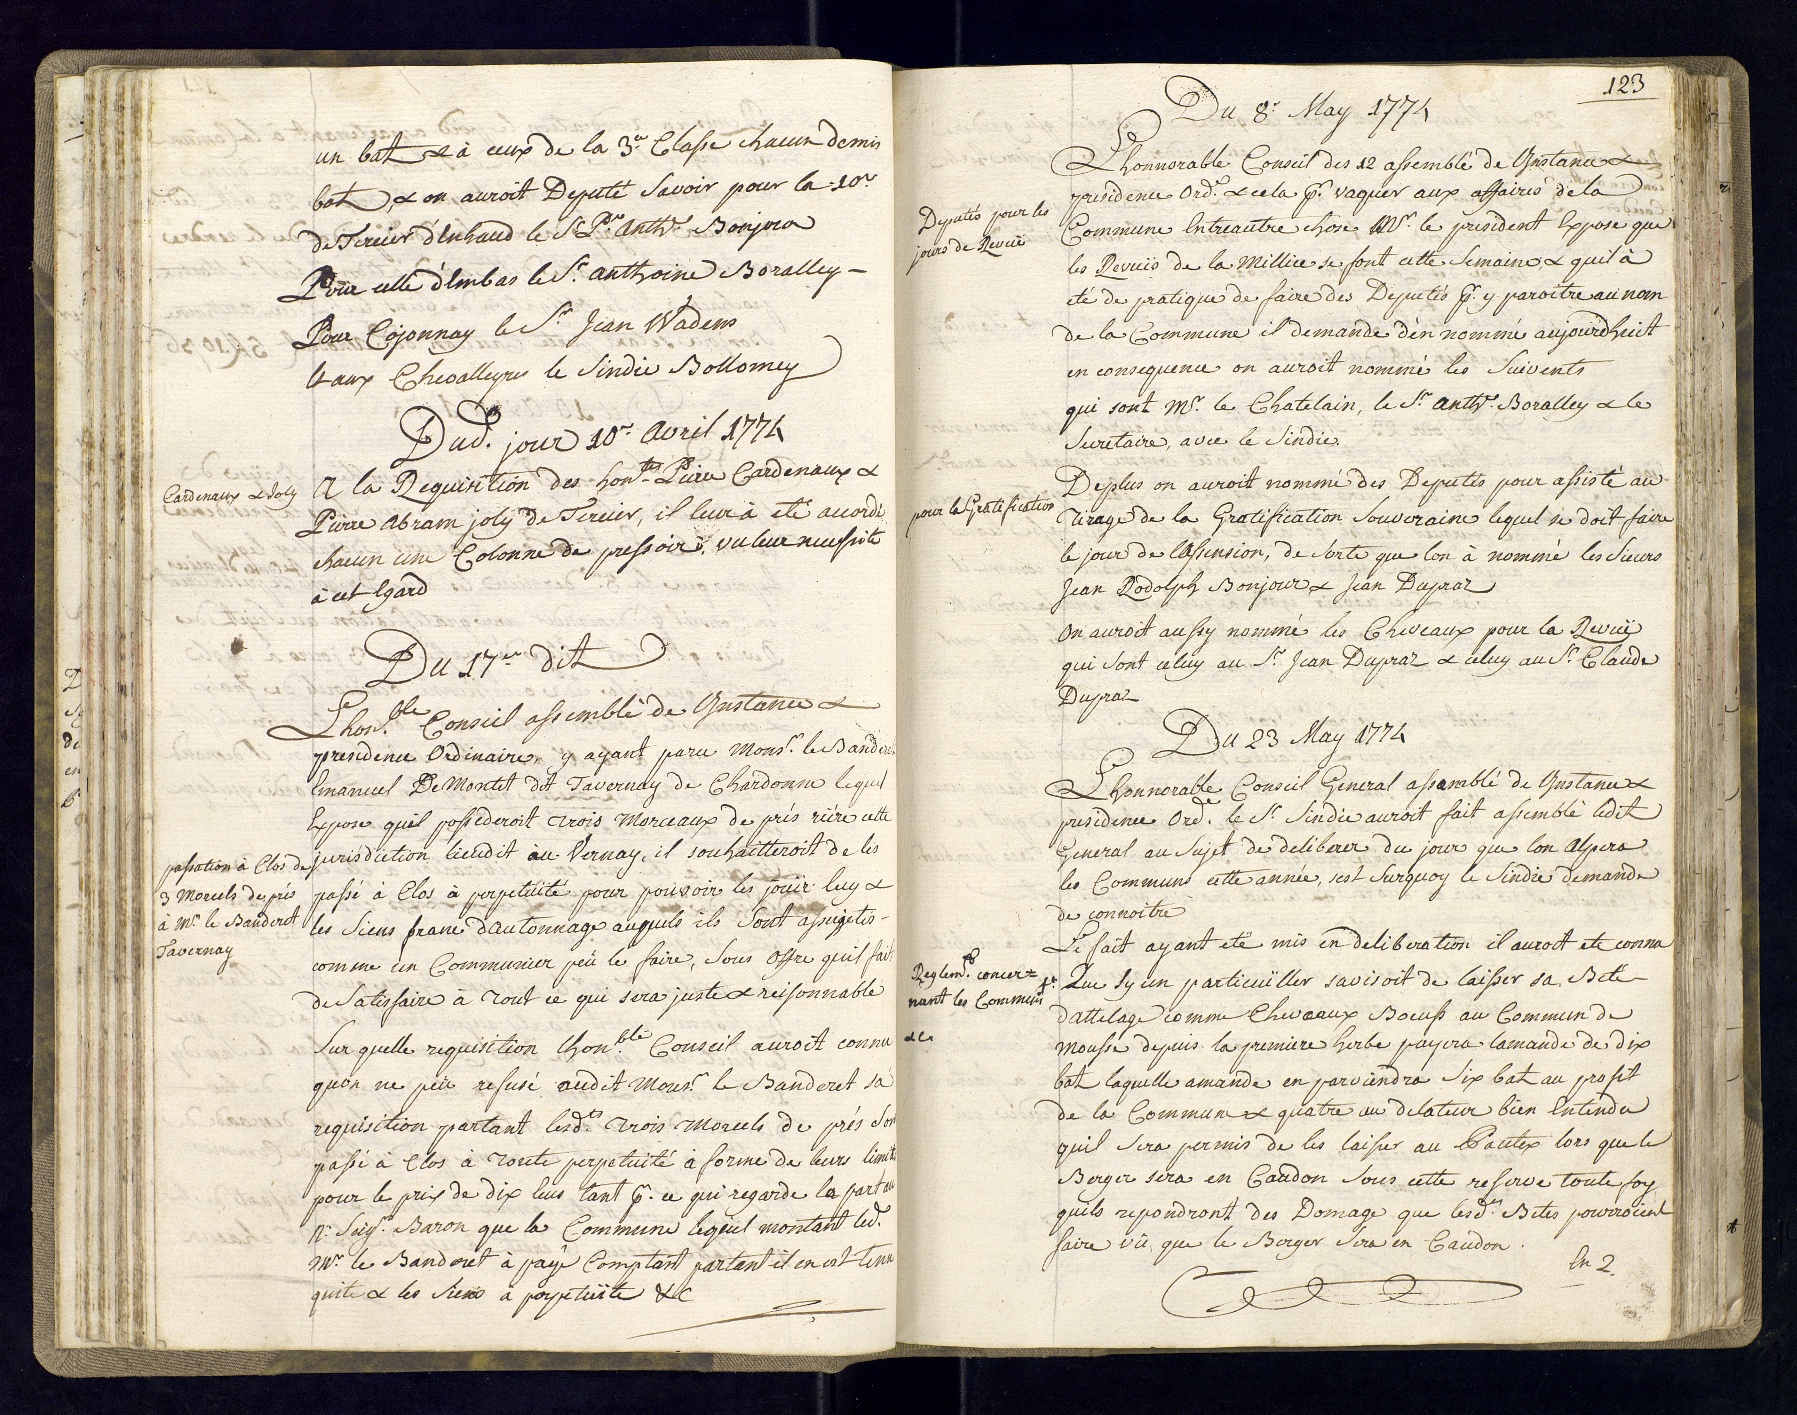 un bat & à ceux de la 3.e Classe chacun demis
bat, & on auroit Deputé Savoir pour la 10.e
de Tercier d'Enhaud le S.r P.re Anth.e Bonjour
Pour celle d'Embas le S.r anthoine Boralley –
Pour Cojonnay le S.r Jean Wadens
Et aux Chevalleyres le Sindic Bottomey
Dud. jour 10.e Avril 1774
Cardenaux & Joly
A la Requisition des hon.tes Pierre Cardenaux &
Pierre Abram joly de Tercier, il leur à eté accordé
chacun une Colonne de pressoir, vu leur necessité
à cet Egard
Du 17.e dit
L'hon.ble Conseil assemblé de Instance &
presidence Ordinaire, y ayant paru Mons.r le Banderet
Emanuel De Montet dit Tavernay de Chardonne lequel
Expose quil possederoit trois Morceaux de prés riére cette
jurisdiction lieudit au Vernay, il souhaitteroit de les
passation à Clos de
3 Morcels de prés
à M.r le Banderet
Tavernay
passé à Clos à perpetüité pour pouvoir les jouir luy &
les Siens franc d'autonnage auquels ils sont assujetis –
comme un Communier peü le faire, Sous Offre quil fait
de Satisfaire à tout ce qui sera juste & reisonnable
Sur quelle requisition Lhon.ble Conseil auroit connu
quon ne peu refusé audit Mons.r le Banderet sa
requisition partant lesd.ts trois Morcels de prés Son
passé à Clos à toute perpetuité à forme de leurs limit
pour le prix de dix Ecus tant p.r ce qui regarde la part au
N. Seig.r Baron que la Commune lequel montant led.t
M.r le Banderet à payé Comptant partant il en est tenu
quite & les Siens à perpetüité &C
123
Du 8.e May 1774
L'honnorable Conseil des 12 assemblé de Instance &
presidence Ord.e & cela p.r vaquer aux affaires de la
Deputés pour les
jours de Revuë
Commune Entreautre chose M.r le president Expose que
les Revuës de la Millice se font cette Semaine, & quil à
eté de pratique de faire des Deputés p.r y paroitre au nom
de la Commune il demande d'en nommé aujourdhuit
en consequence on auroit nommé les Suivents
qui sont M.r le Chatelain, le S.r Anth.e Boralley & le
Secretaire, avec le Sindic.
Deplus on auroit nommé des Deputés pour assisté au
pour la Gratification
Tirage de la Gratification Souveraine lequel se doit faire
le jour de L'Assension, de sorte que lon à nommé les Sieurs
Jean Rodolph Bonjour & Jean Dupraz
On auroit aussy nommé les Cheveaux pour la Revuë
qui sont celuy au S.r Jean Dupraz & celuy au S.r Claude
Dupraz
Du 23 May 1774
L'honnorable Conseil General assamblé de Instance &
presidence Ord.e le S.r Sindic auroit fait assemblé ledit
General au Sujet de deliberer du jour que lon Alpera
les Communs cette année, sest Surquoy le Sindic demande
de connoitre
Le fait ayant eté mis en deliberation il auroit eté connu
Reglem.t concer=
nant les Communs
&c.
1.o Que sy un particuiller savisoit de laisser sa Bête
dattelage comme Cheveaux Boeufs au Commun de
Mousse depuis la premiere herbe payera lamande de dix
bat laquelle amande en parviendra Six bat au profit
de la Commune & quatre au delateur bien Entendu
quil sera permis de les laisser au Pautex lors que le
Berger sera en Caudon sous cette reserve toute foy
quils repondront des Domage que lesd.tes Bêtes pourroient
faire vü que le Berger sera en Caudon.
En 2